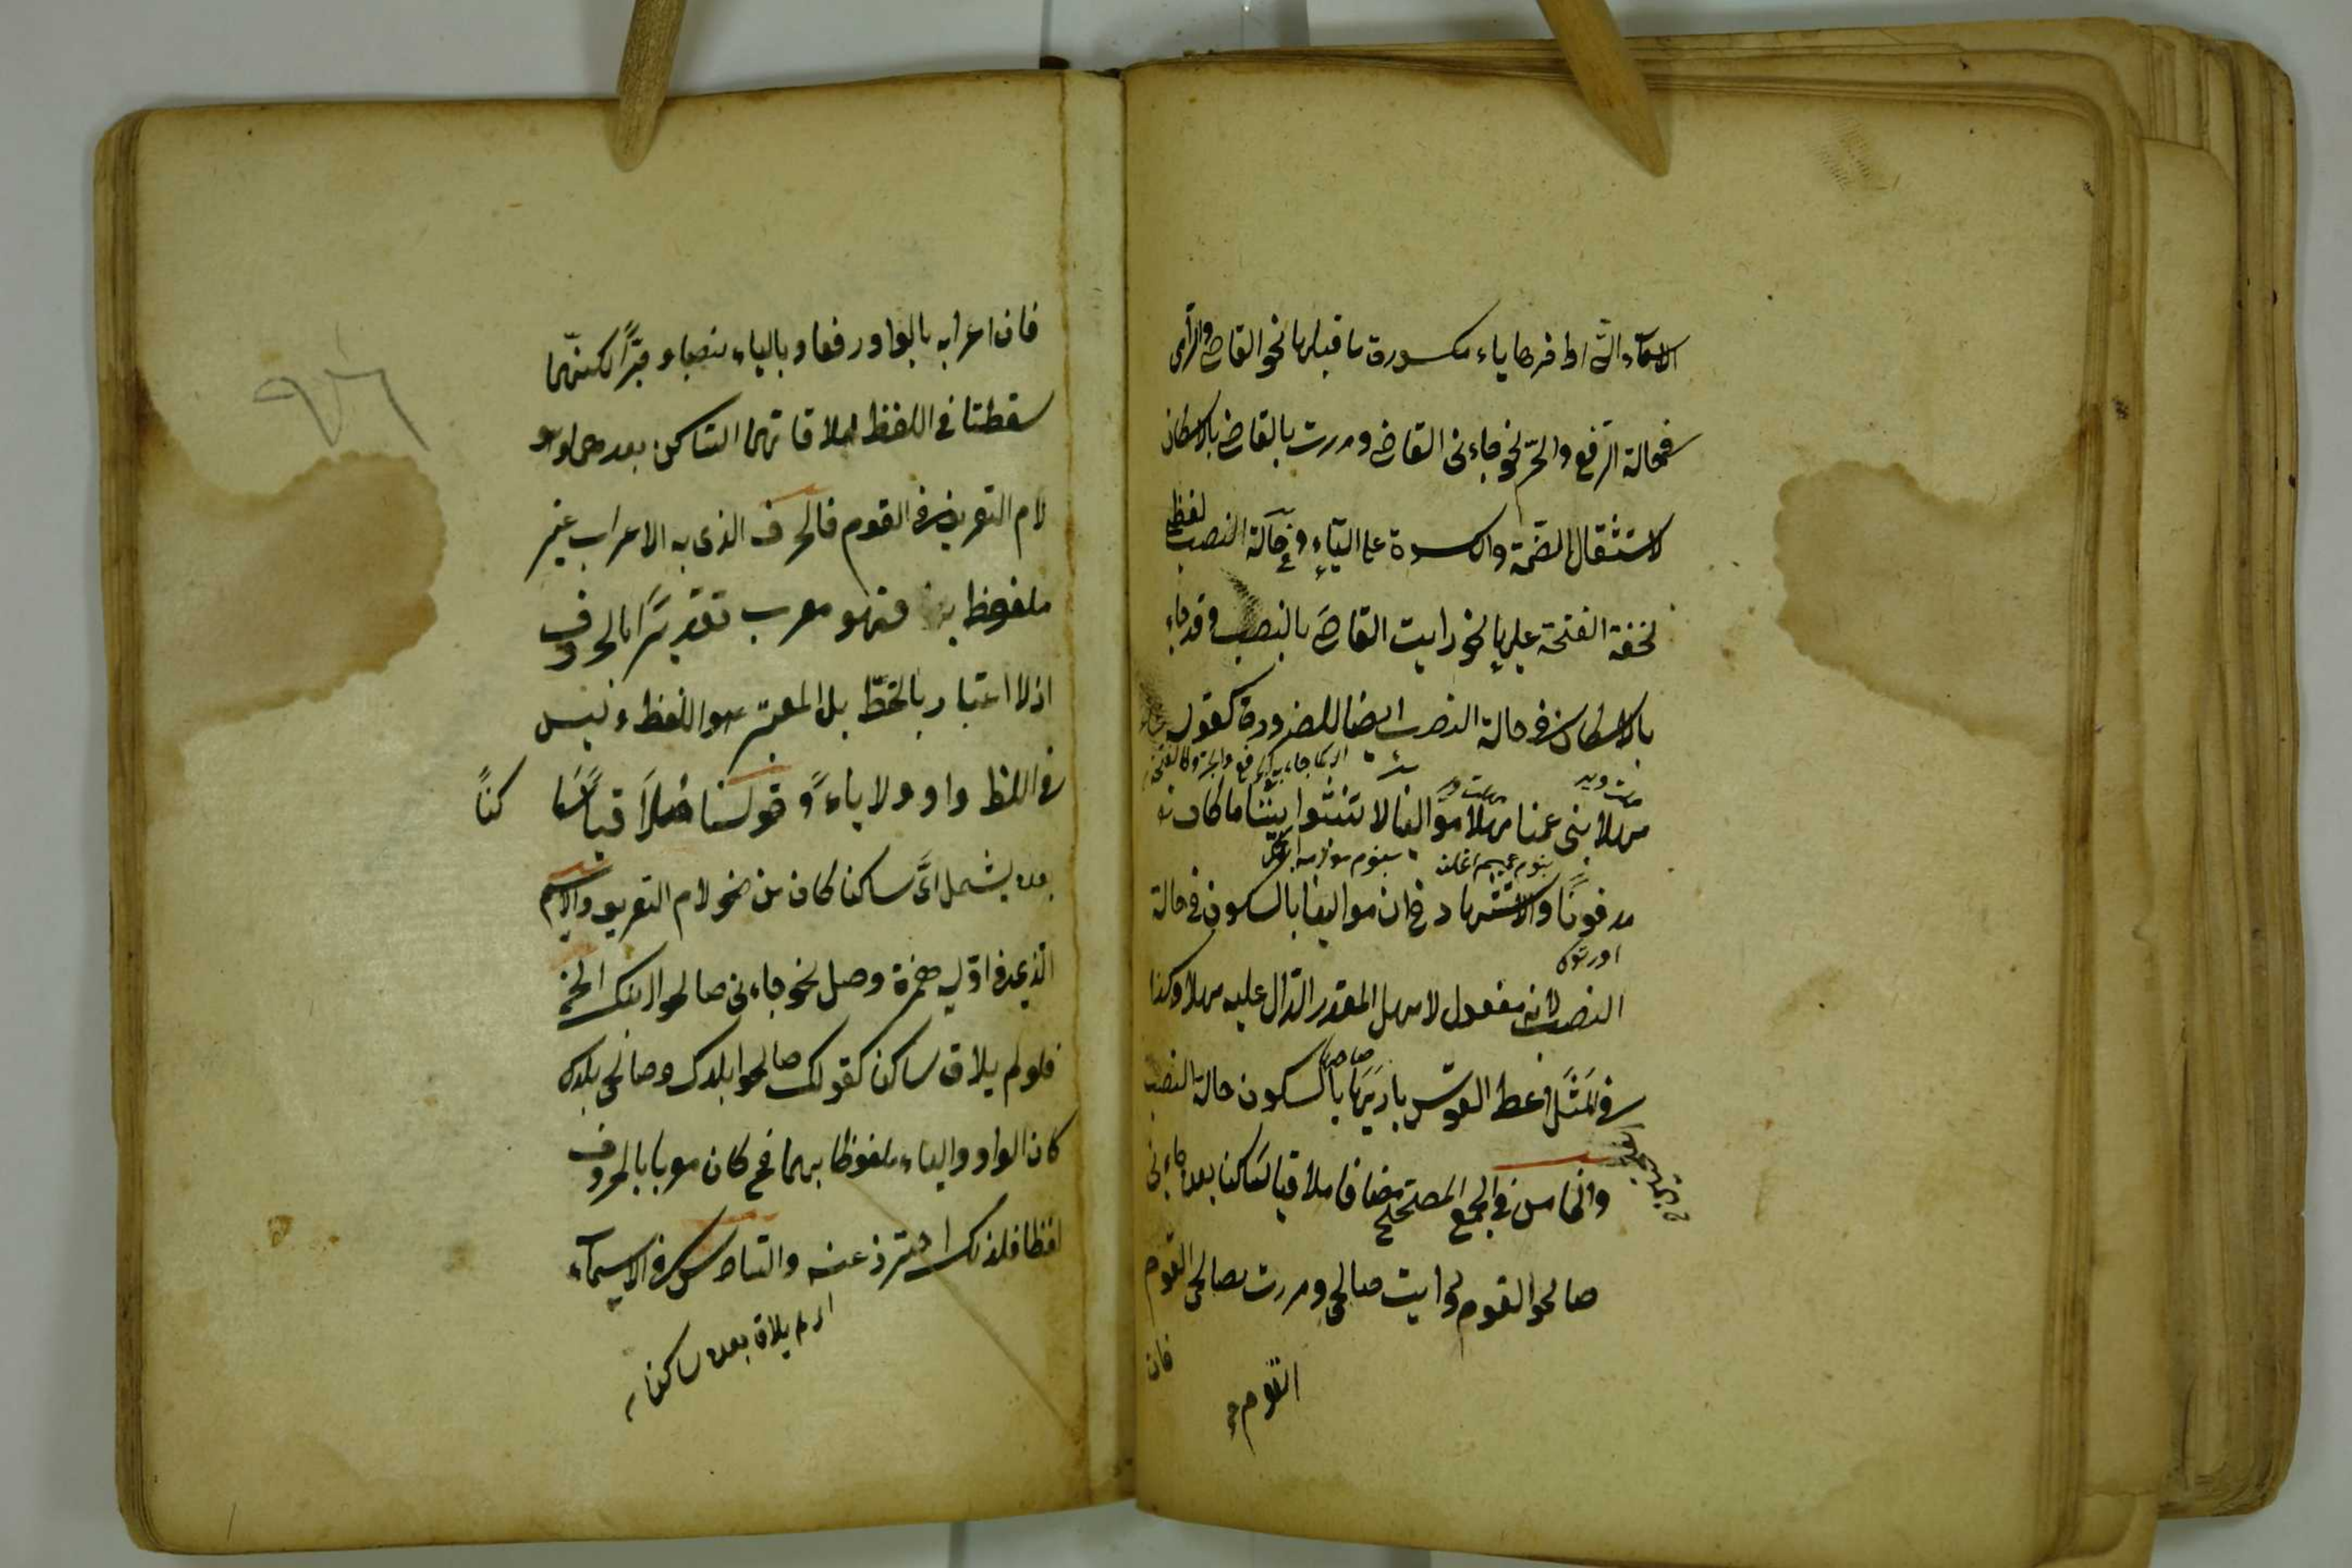 الاسمآء الّتى اواخرها ياء مكسورة ما قبلها نحو القاضى والرّامى
ففى حالة الرّفع والجرّ نحو جاءنى القاضى ومررت بالقاضى بالاسكان
لاستثقال الضّمة والكسرة على اليآءِ وفى حآلة النصب لفظى
لخفة الفتحة عليها نحو رايت القاضىَ بالنصب وقد جاء
بالاسكان فى حالة النصب ايضا للضرورة كقوله
مهلا بنى عمنا مهلا موالينا لا تنبشوا بيننا ما كان
مدفونًا والاستشهاد فى ان موالينا بالسكون فى حالة
النصب لانه مفعول لامهل المقدر الدّال عليه مهلا وكذا
فى المَثَل اعط القوس باريَها بالسكون حالة النصب
والخامس فى الجمع المصحّح مضافا ملاقيا ساكنا بعده جاءنى
صالحوا القوم ورايت صالحى ومررت بصالحى القوم
القوم
فان
فان اعرابه بالواو رفعا وبالياء نصبا وجرًّا لكنّهما
سقطتا فى اللفظ لملاقاتهما السّاكن بعدهما وهو
لام التعريف فى القوم فالحرف الذى به الاعراب غير
ملفوظ به فهو معرب تقديرًا بالحروف
اذ لا اعتبار بالخطّ بل المعتبر هو اللفظ وليس
فى اللفظ واو ولا ياء وقولنا ملاقيًا ساكنًا
بعده يشمل اىّ ساكن كان من نحو لام التعريف والاسم
الّذى فى اوّله همزة وصل نحو جاءنى صالحوا ابنك الخ
فلو لم يلاق ساكن كقولك صالحوا بلدك وصالحى بلدك
كان الواو والياء ملفوظا بهما فح كان معربا بالحروف
لفظا فلذلك احترز عنه والسّادس فى الاسمآء
اى لم يلاق بعده ساكنا
٩٦